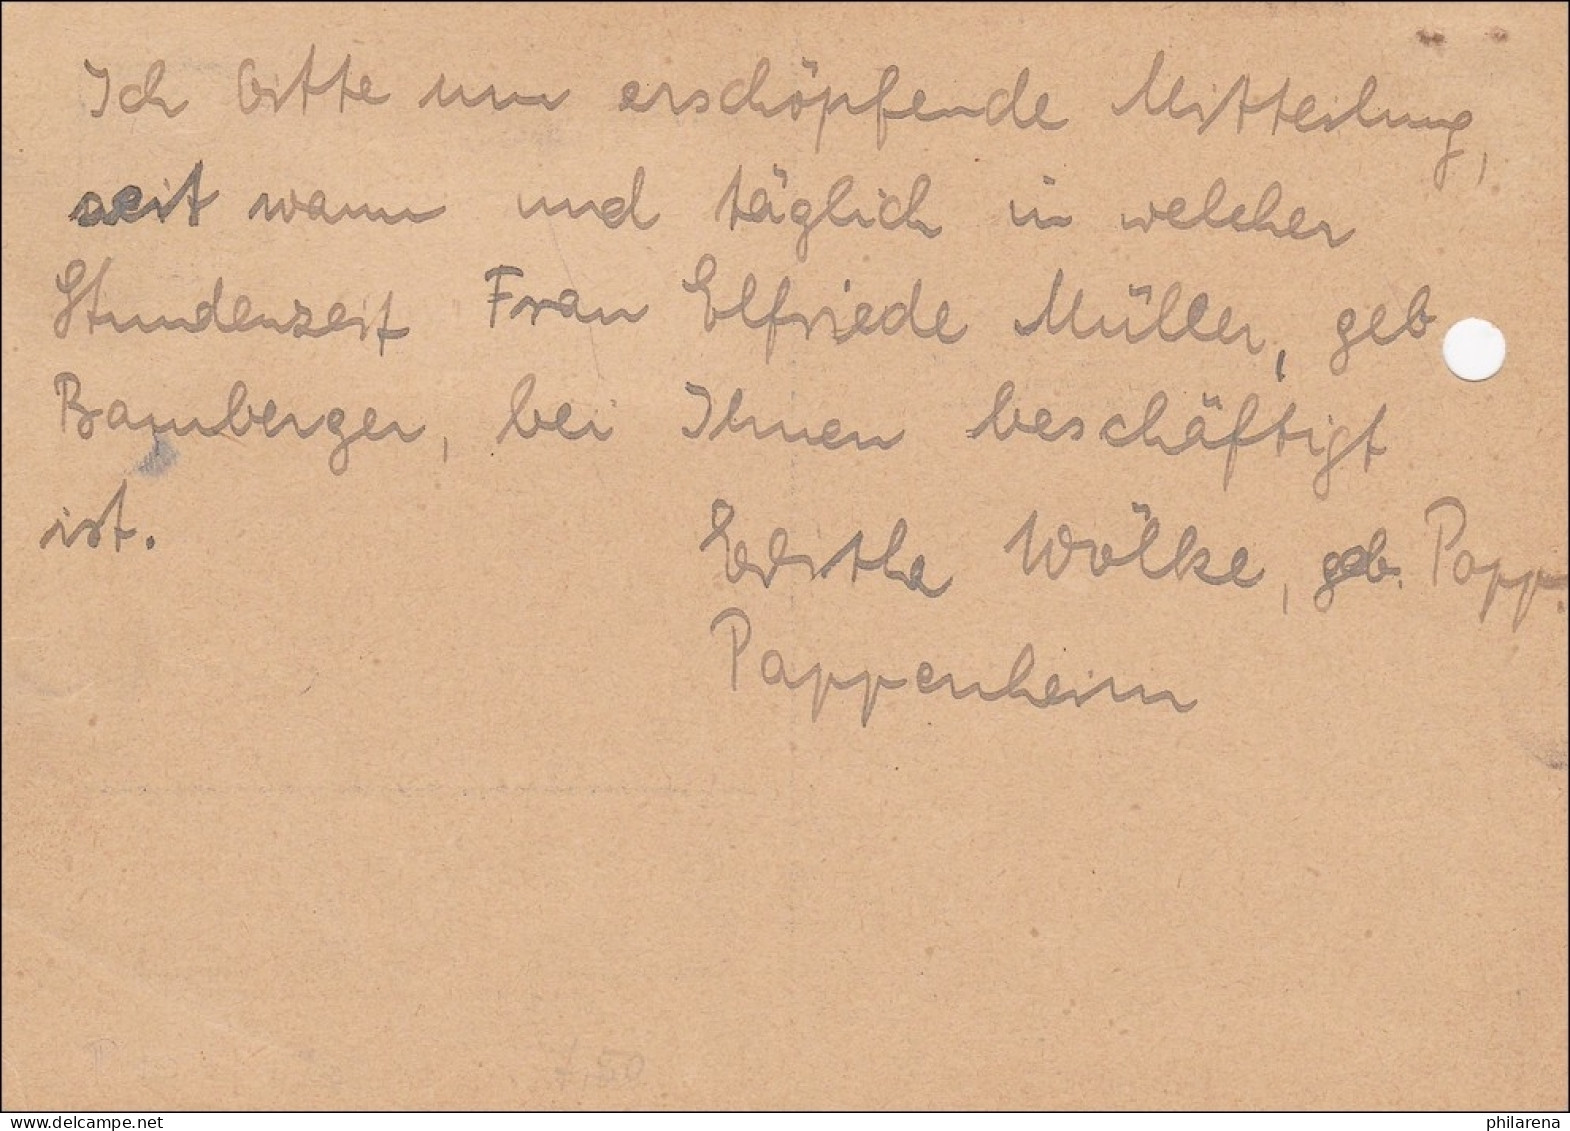 Ich bitte um erschöpfende Mitteilung,
seit wann und täglich in welcher
Stundenzeit Frau Elfriede Müller, geb
Bamberger, bei Ihnen beschäftigt
ist.
Editha Wölke, geb. Papp
Pappenheim
7,50
www.delcampe.net
philarena